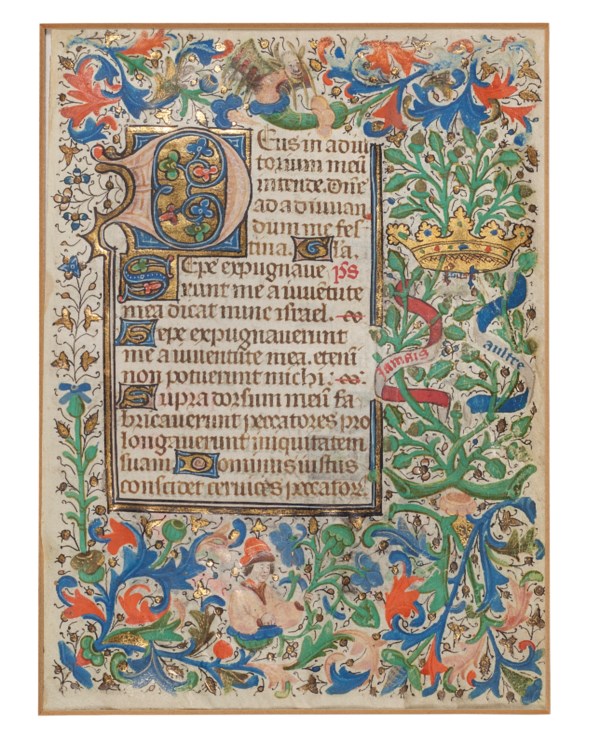 Deus in adiu
torium meū
intende. Dn̄e
ad adiuuan
dum me fes
tina. Gla.
Sepe expugnaue ps
runt me a iuuētute
mea dicat nunc israel.
Sepe expugnauerunt
me a iuuentute mea. etenī
non potuerunt michi.
Supra dorsum meū fa
bricauerunt peccatores pro
longauerunt iniquitatem
suam Dominus iustus
concidet ceruices peccator
jamais
aultre